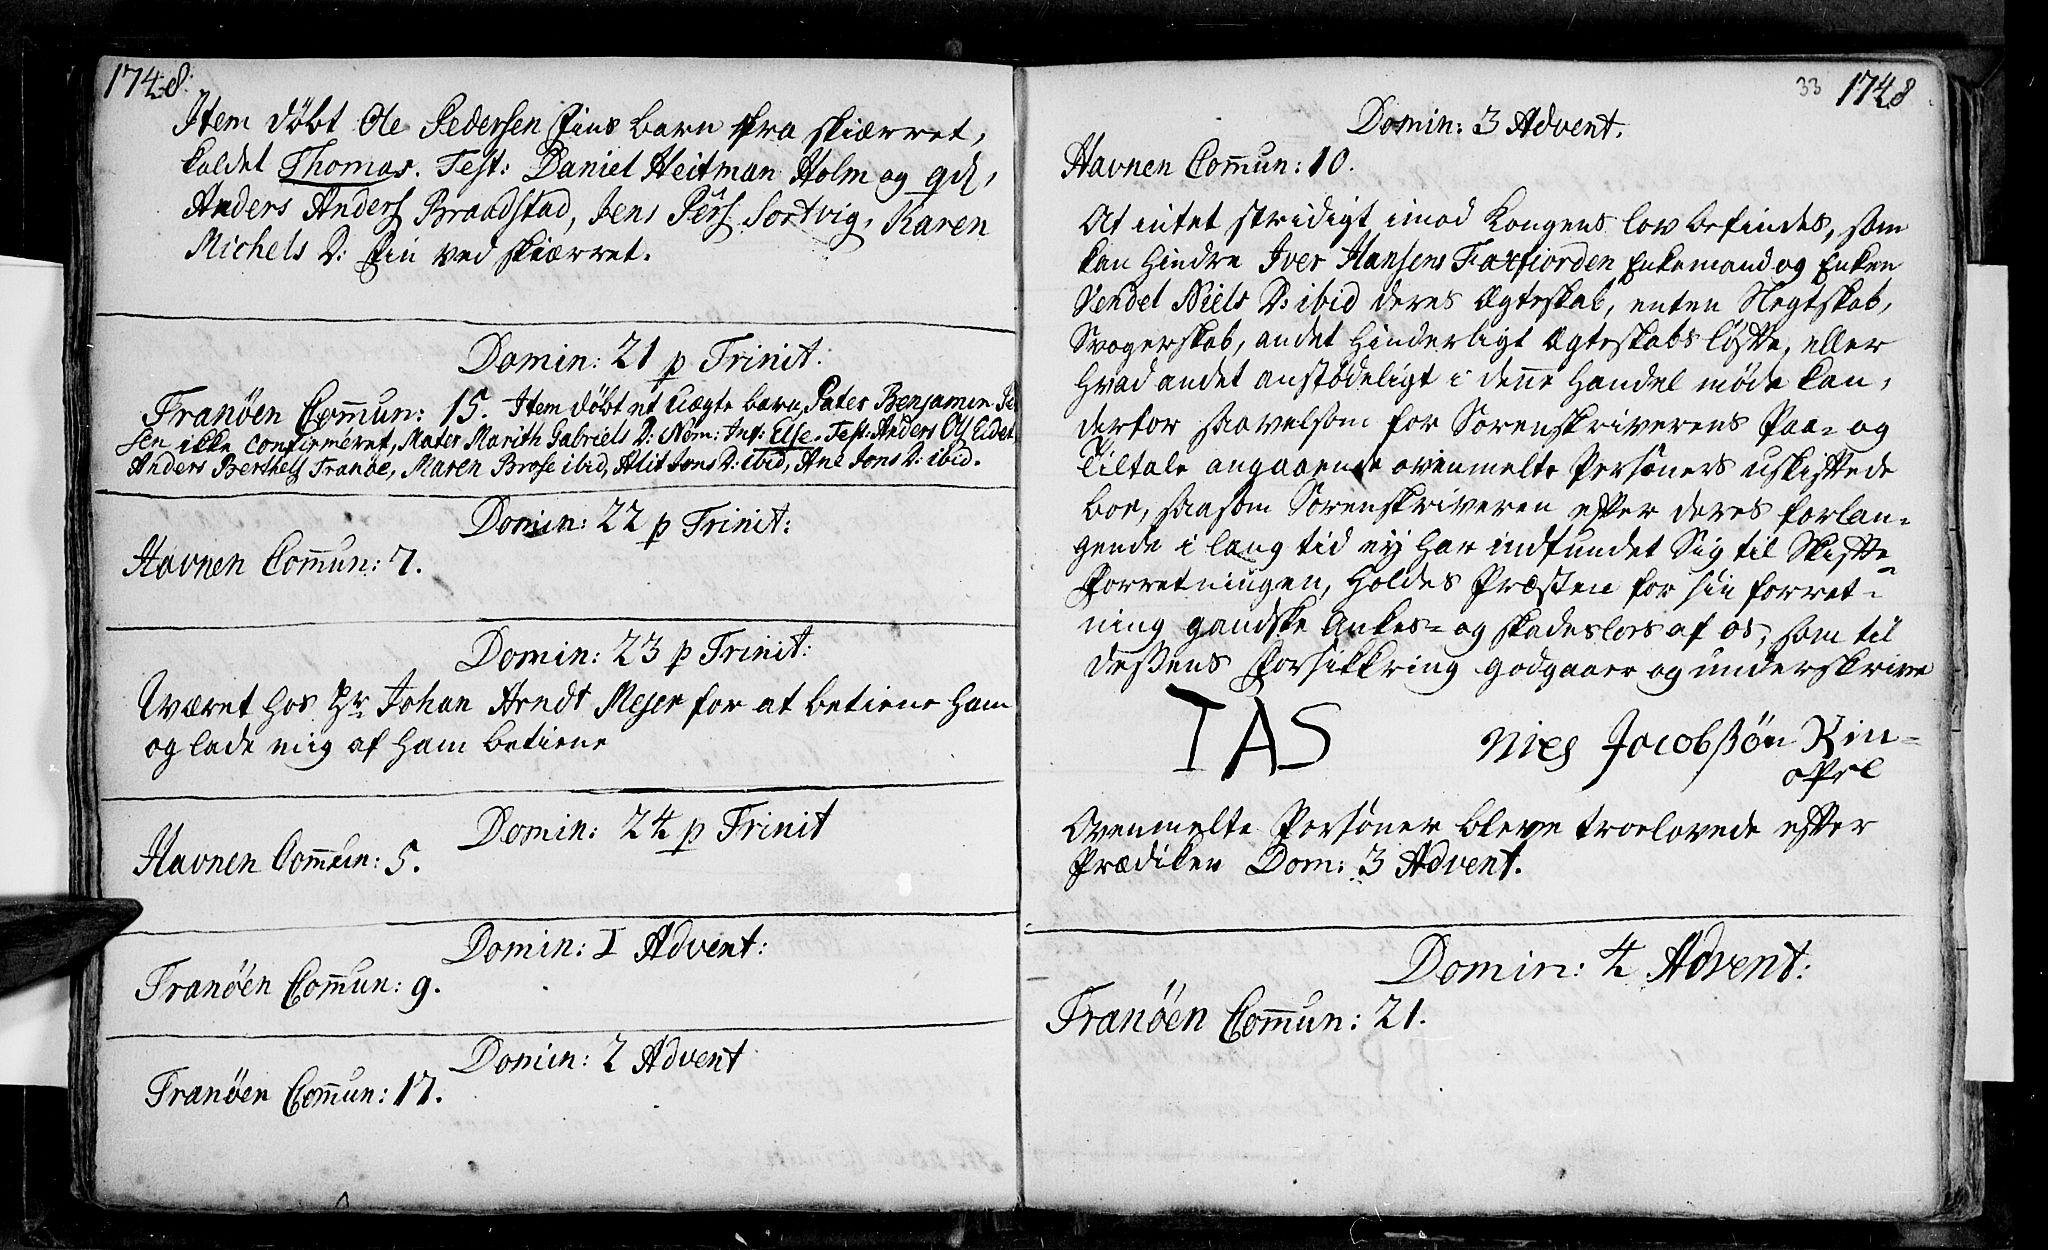 1748.
Item døbt Ole Pedersen Fins barn fra skiærret,
kaldet Thomas. Test: Daniel Heitman Holm og
Anders Anders Braadstad, Jens Pers Sortvig, Karen
Michels D: Fin ved skiærret.
Domin: 21 p Trinit.
Tranöen Com̄un: 15. Item döbt et uægte barn, Pater Benjamin
sen ikke confirmeret, Mater Marith Gabriels D: Nom: Inf: Else. Test: Anders Ols Eidet
Anders Berthels Tranöe, Maren Brose ibid, Alit Jons D: ibid, Ane Jons D: ibid.
Domin: 22 p Trinit:
Havnen Com̄un: 7.
Domin: 23 p Trinit:
Været hos Hr Johan Arndt Mejer for at betiene ham
og lade mig af ham betiene
Domin: 24 p Trinit
Havnen Com̄un: 5.
Domin: I Advent:
Tranöen Com̄un: 9.
Domin: 2 Advent
Tranöen Com̄un: 17.
33 1748
Domin: 3 Advent.
Havnen Com̄un: 10.
At intet stridigt imod Kongens lov befindes, som
kan hindre Iver Hansens Faxfiorden Enkemand og Enken
Vendel Niels D: ibid deres Ægteskab, enten Slegtskab,
Svogerskab, andet hinderligt Ægteskabs løfte, eller
hvad andet anstødeligt i denne handel møde kan,
derfor saavelsom for Sorenskriverens Paa- og
Tiltale angaaende ovenmelte Personers uskiftede
boe, saasom Sorenskriveren efter deres forlan-
gende i lang tid ey har indfundet Sig til Skifte-
Forretningen, holdes Præsten for sin forret-
ning gandske Ankes- og skadesløs af os, som til
dessens Forsikkring godgaaer og underskrive
IAS Niels Jacobssön Kin-
Ovenmelte Persøner bleve troelovede efter
Prædiken Dom: 3 Advent.
Domin: 4 Advent:
Tranöen Com̄un: 21.